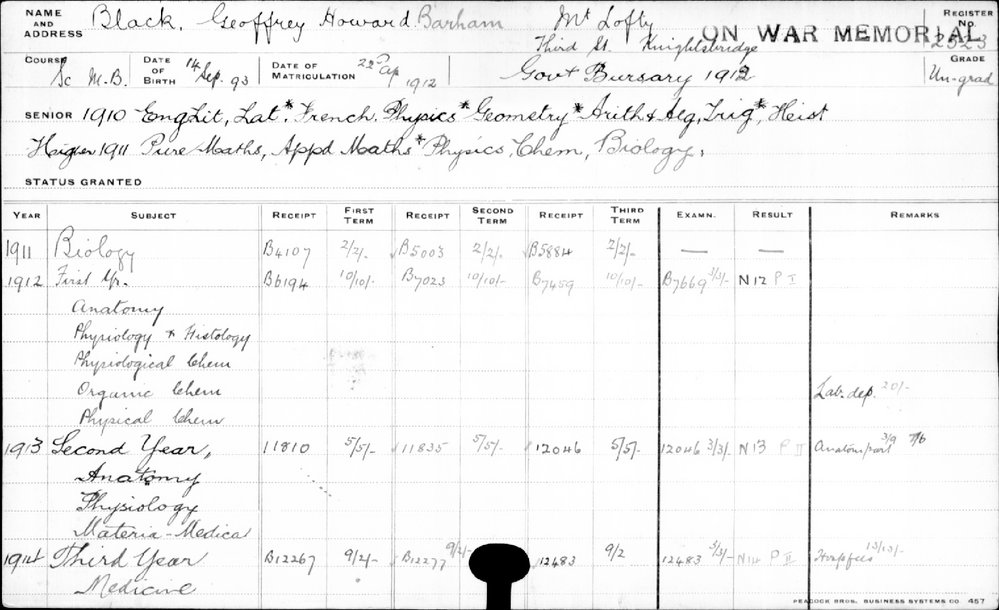 NAME AND ADDRESS Black, Geoffrey Howard Barham Mt Lofty ON WAR MEMORIAL REGISTER No. 2523
Third St. Knightsbridge
COURSE Sc M.B. DATE OF BIRTH 14 Sep. 93 DATE OF MATRICULATION 1912 Govt Bursary 1912 GRADE Un-grad
SENIOR 1910 Eng Lit, Lat*. French, Physics* Geometry* Arith & Alg, Trig*, Heist
Higher 1911 Pure Maths, Appd Maths* Physics, Chem, Biology,
STATUS GRANTED
YEAR SUBJECT RECEIPT FIRST TERM RECEIPT SECOND TERM RECEIPT THIRD TERM EXAMN. RESULT REMARKS
1911 Biology B4107 2/2/- B5003 2/2/- B5884 2/2/- — —
1912 First Yr. B6194 10/10/- B7023 10/10/- B7459 10/10/- B7669 3/3/- N12 P I
Anatomy
Physiology & Histology
Physiological Chem
Organic Chem Lab. dep. 20/-
Physical Chem
1913 Second Year, 11810 5/5/- 11835 5/5/- 12046 5/5/- 12046 3/3/- N13 P II Anatom/part 3/9 7/6
Anatomy
Physiology
Materia-Medica
1914 Third Year B12267 9/2/- B12277 9/2/- 12483 9/2 12483 3/3/- N14 P II Hospfees 13/13/-
Medicine
PEACOCK BROS. BUSINESS SYSTEMS CO 457